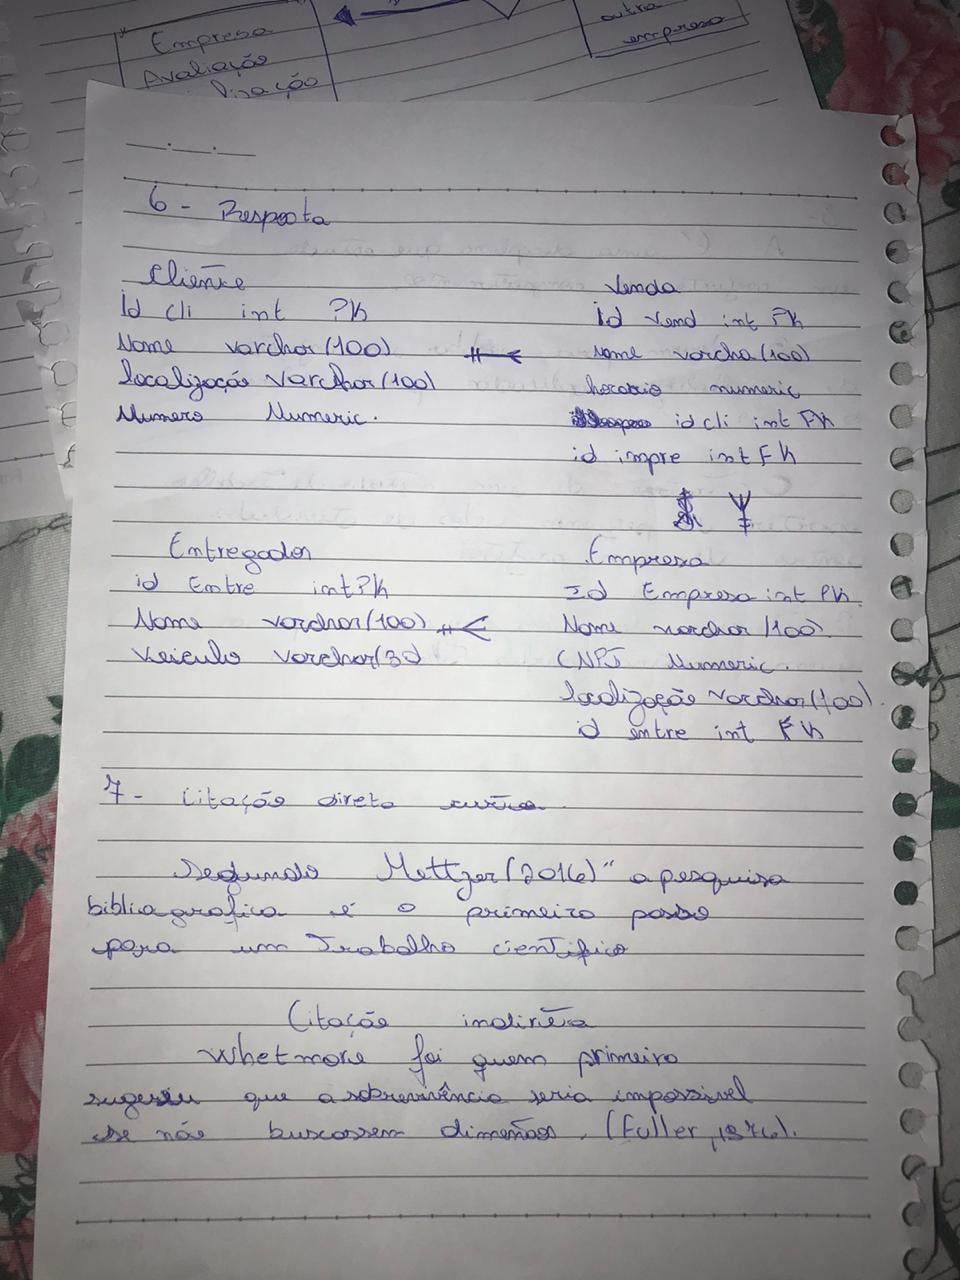 Empresa
Avaliação
outra
empresa
6 - Resposta
Cliente
Id cli int PK
Nome varchar(100)
localização Varchar(100)
Numero Numeric.
Venda
id Vend int PK
Nome varcha(100)
horario numeric
id cli int FK
id impre int FK
Entregador
id Entre int PK
Nome varchar(100)
Veiculo varchar(30)
Empresa
Id Empresa int PK.
Nome varchar(100).
CNPJ Numeric.
localização Varchar(100).
id entre int FK
7 - Citação direta curta
Segundo Mettzer(2016)" a pesquisa
bibliagrafica é o primeiro passo
para um Trabalho cientifico
Citação indireta
Whetmore foi quem primeiro
sugeriu que a sobrevivência seria impossível
se não buscassem . (Fuller, 1976).